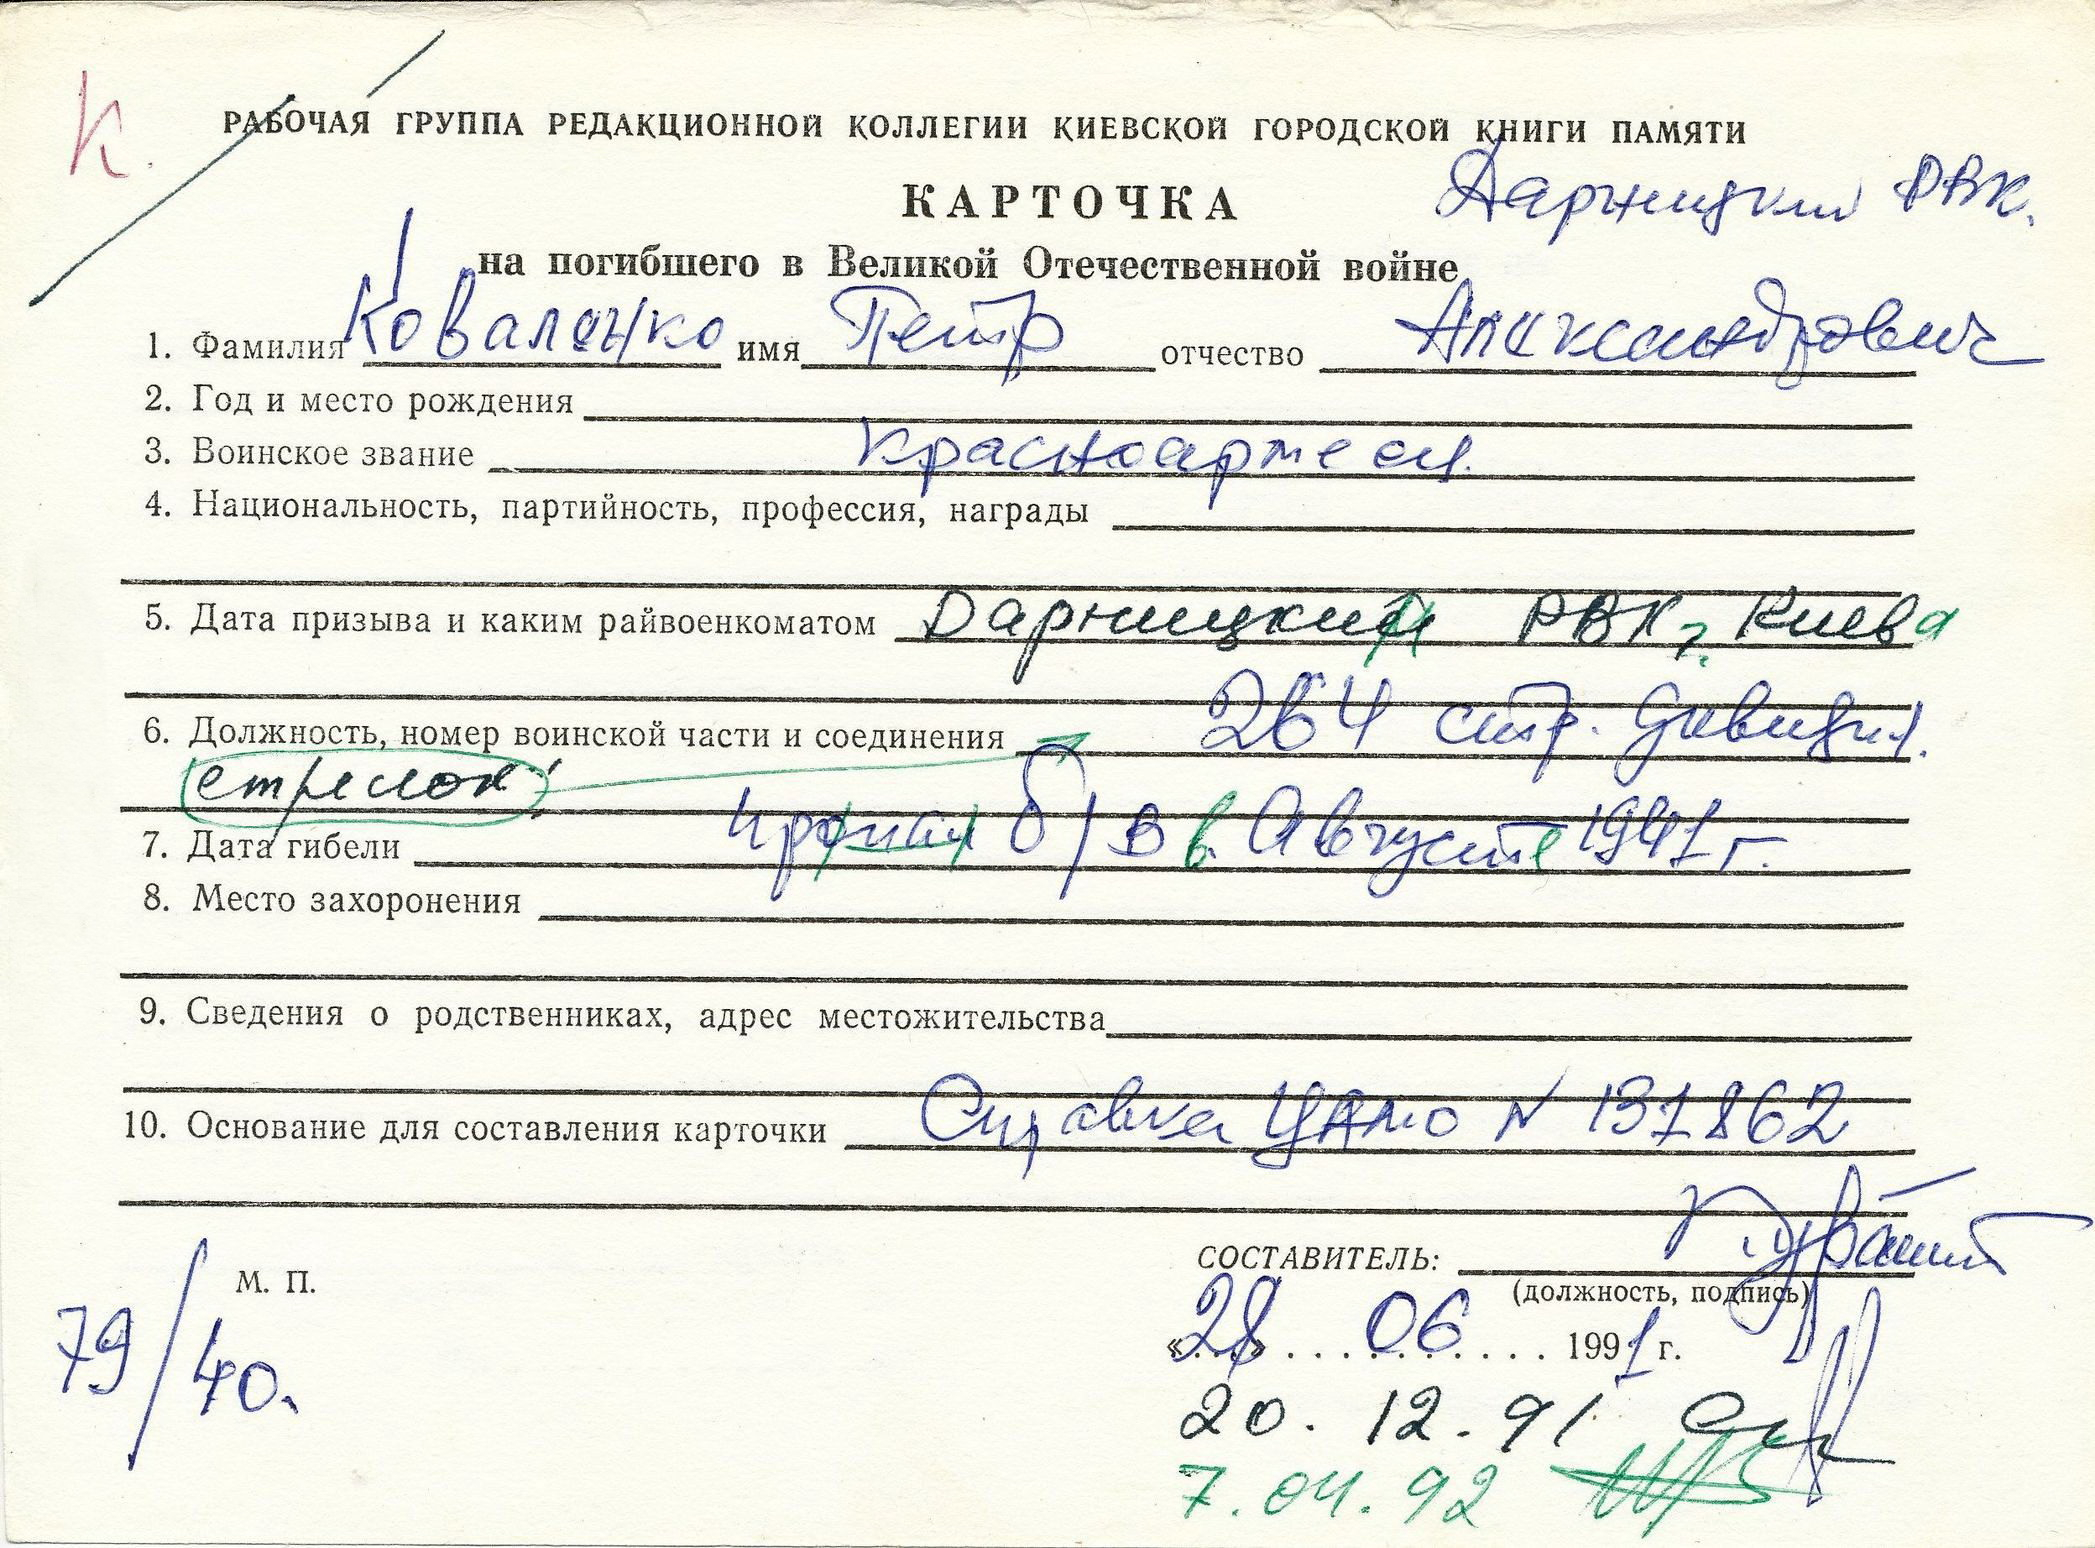 К.
РАБОЧАЯ ГРУППА РЕДАКЦИОННОЙ КОЛЛЕГИИ КИЕВСКОЙ ГОРОДСКОЙ КНИГИ ПАМЯТИ
КАРТОЧКА
Дарницкий РВК.
на погибшего в Великой Отечественной войне
1. Фамилия Коваленко имя Петр отчество Александрович
2. Год и место рождения
3. Воинское звание красноармеец.
4. Национальность, партийность, профессия, награды
5. Дата призыва и каким райвоенкоматом Дарницкий РВК г. Киева
6. Должность, номер воинской части и соединения 264 стр. дивизия.
стрелок
7. Дата гибели пропал б/в в Августе 1941 г.
8. Место захоронения
9. Сведения о родственниках, адрес местожительства
10. Основание для составления карточки Справка ЦАМО N 131862
СОСТАВИТЕЛЬ:
М. П.
(должность, подпись)
«28» 06 1991 г.
79/40.
20. 12. 91
7. 04. 92